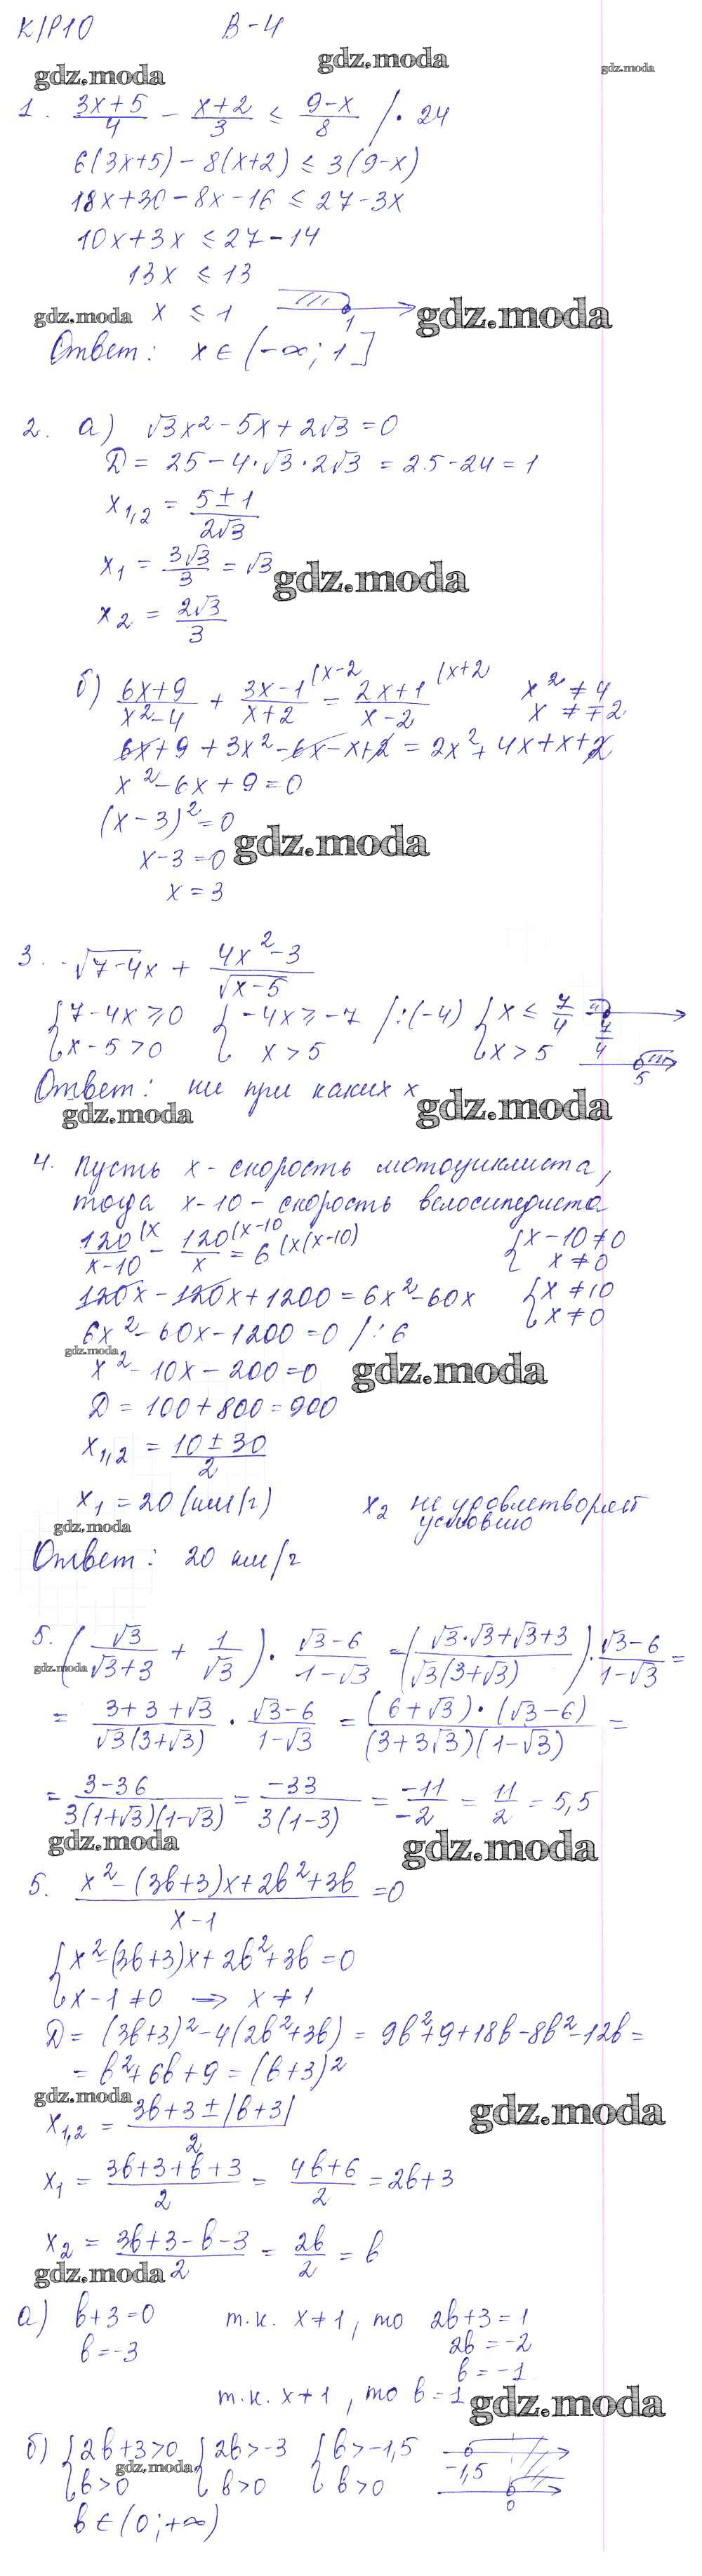 К/Р10 В-4
gdz.moda gdz.moda gdz.moda
1. (3x+5)/4 - (x+2)/3 ≤ (9-x)/8 /· 24
6(3x+5) - 8(x+2) ≤ 3(9-x)
18x+30-8x-16 ≤ 27-3x
10x+3x ≤ 27-14
13x ≤ 13
gdz.moda x ≤ 1 1 gdz.moda
Ответ: x ∈ (-∞; 1]
2. а) √3x²-5x+2√3=0
Д = 25-4·√3·2√3 = 25-24=1
x₁,₂ = (5±1)/(2√3)
x₁ = 3√3/3 = √3 gdz.moda
x₂ = 2√3/3
б) (6x+9)/(x²-4) + (3x-1)/(x+2) (x-2 = (2x+1)/(x-2) (x+2 x² ≠ 4
x ≠ ∓2
6x+9+3x²-6x-x+2 = 2x²+4x+x+2
x²-6x+9=0
(x-3)²=0
x-3=0 gdz.moda
x=3
3. √7-4x + (4x²-3)/√(x-5)
{7-4x ≥ 0 {-4x ≥ -7 /:(-4) {x ≤ 7/4 7/4
{x-5>0 {x>5 {x>5 5
Ответ: ни при каких x
gdz.moda gdz.moda
4. Пусть x - скорость мотоциклиста,
тогда x-10 - скорость велосипедиста
120/(x-10) (x - 120/x (x-10 = 6 (x(x-10) {x-10≠0
{x≠0
120x-120x+1200=6x²-60x {x≠10
{x≠0
6x²-60x-1200=0 /:6
gdz.moda
x²-10x-200=0 gdz.moda
Д = 100+800=900
x₁,₂ = (10±30)/2
x₁ = 20 (км/г) x₂ не удовлетворяет
условию
gdz.moda
Ответ: 20 км/г
5. (√3/(√3+3) + 1/√3) · (√3-6)/(1-√3) = ((√3·√3+√3+3)/(√3(3+√3))) · (√3-6)/(1-√3) =
gdz.moda
= (3+3+√3)/(√3(3+√3)) · (√3-6)/(1-√3) = ((6+√3)·(√3-6))/((3+3√3)(1-√3)) =
= (3-36)/(3(1+√3)(1-√3)) = -33/(3(1-3)) = -11/-2 = 11/2 = 5,5
gdz.moda gdz.moda
5. (x²-(3b+3)x+2b²+3b)/(x-1) =0
{x²-(3b+3)x+2b²+3b=0
{x-1≠0 → x≠1
Д = (3b+3)²-4(2b²+3b) = 9b²+9+18b-8b²-12b =
= b²+6b+9 = (b+3)²
gdz.moda gdz.moda
x₁,₂ = (3b+3±|b+3|)/2
x₁ = (3b+3+b+3)/2 = (4b+6)/2 = 2b+3
x₂ = (3b+3-b-3)/2 = 2b/2 = b
gdz.moda
а) b+3=0 т.к. x≠1, то 2b+3=1
b=-3 2b=-2
b=-1
т.к. x≠1, то b=1 gdz.moda
б) {2b+3>0 {2b>-3 {b>-1,5 -1,5
gdz.moda
{b>0 {b>0 {b>0 0
b∈(0;+∞)